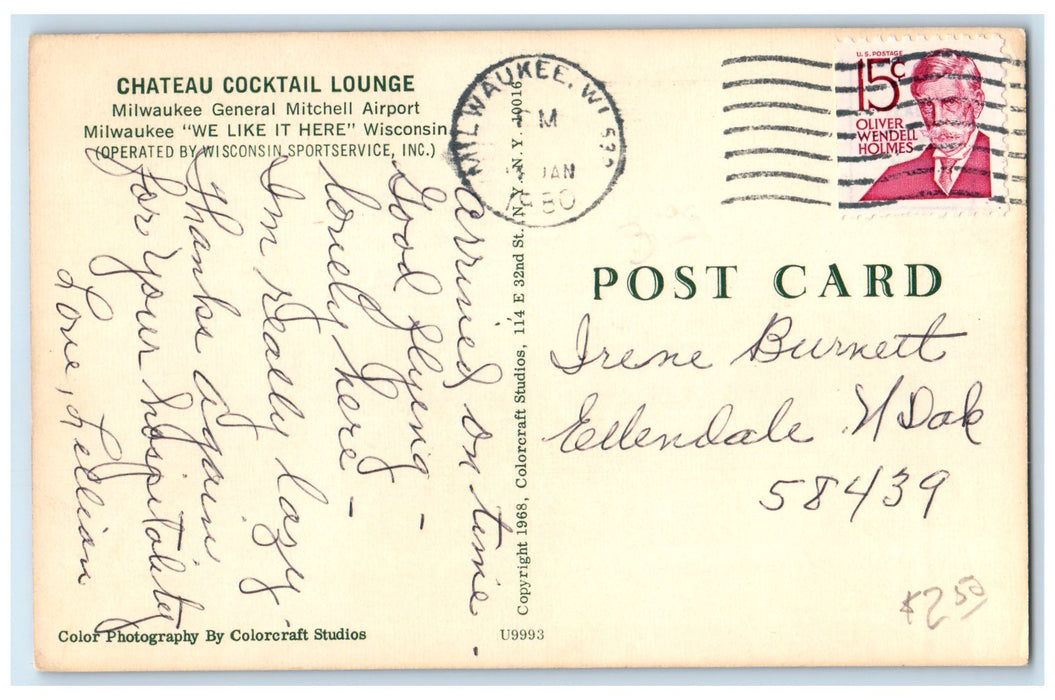 CHATEAU COCKTAIL LOUNGE
Milwaukee General Mitchell Airport
Milwaukee "WE LIKE IT HERE" Wisconsin
(OPERATED BY WISCONSIN SPORTSERVICE, INC.)
Arrived on time -
Good flying -
lonely here -
I'm really lazy.
Thanks again
for your hospitality
Love, Lillian
Color Photography By Colorcraft Studios
Copyright 1968, Colorcraft Studios, 114 E 32nd St. N.Y., N.Y. 10016
U9993
MILWAUKEE, WI 532
M
JAN
U.S. POSTAGE
15c
OLIVER
WENDELL
HOLMES
POST CARD
Irene Burnett
Ellendale N Dak
58439
$2.50